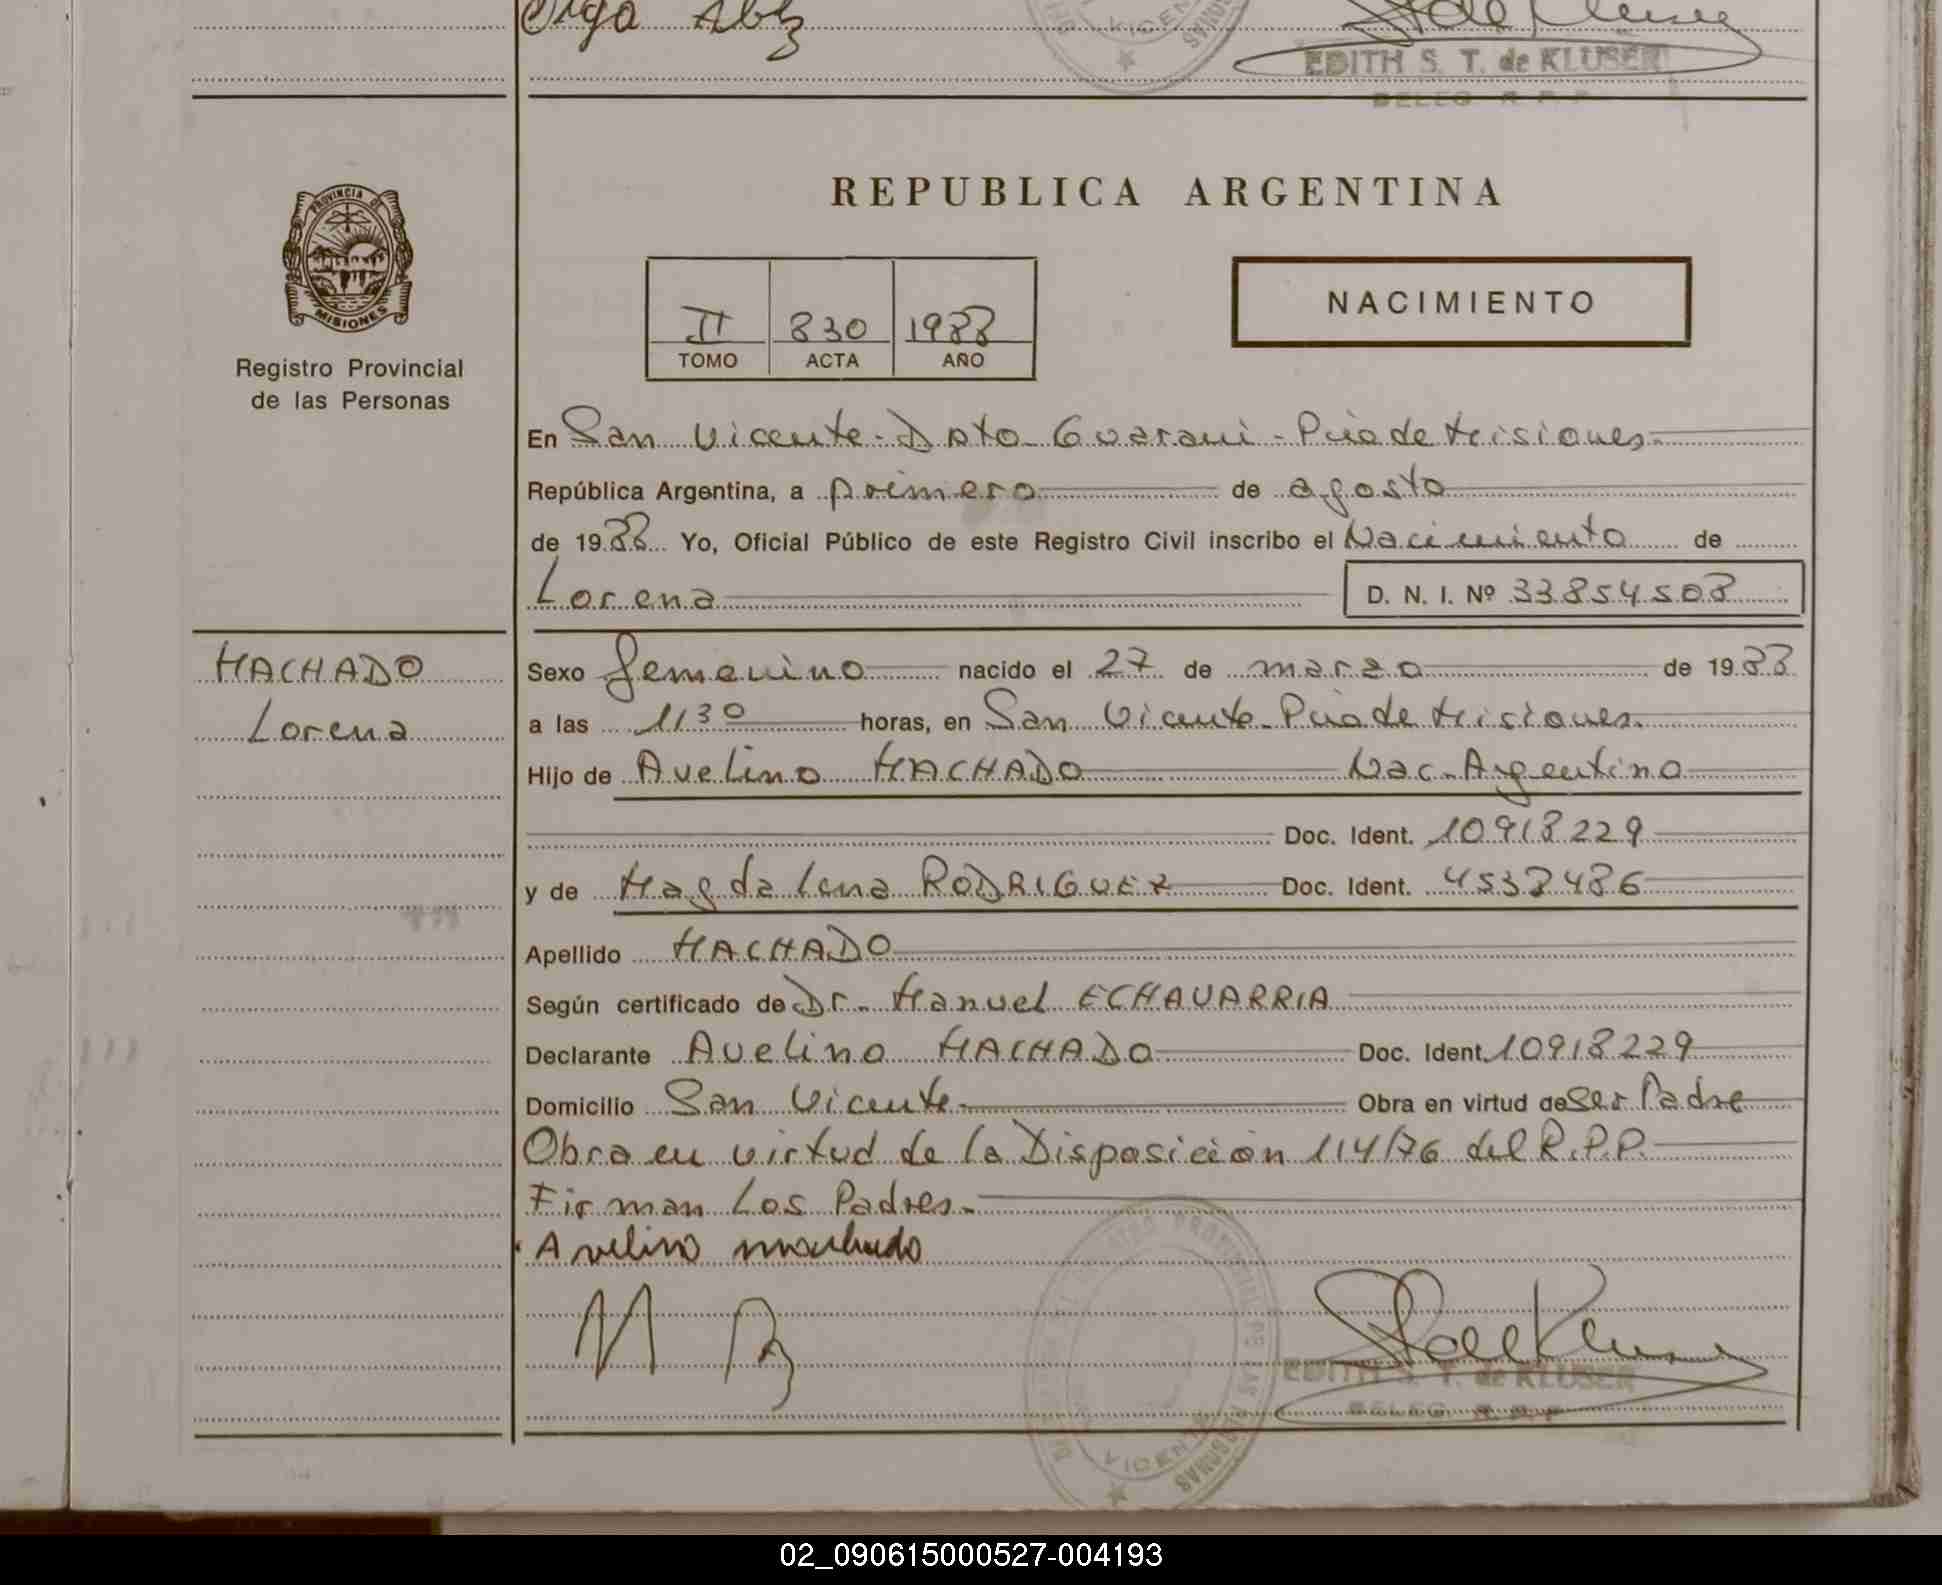 Olga
EDITH S. T. de KLUSER
DELEG. R. P. P.
PROVINCIA DE
MISIONES
Registro Provincial
de las Personas
REPUBLICA ARGENTINA
II 830 1988
TOMO ACTA AÑO
NACIMIENTO
En San Vicente - Dpto Guarani - Pcia de Misiones.
República Argentina, a primero de agosto
de 1988 Yo, Oficial Público de este Registro Civil inscribo el Nacimiento de
Lorena D. N. I. Nº 33854508
MACHADO
Lorena
Sexo femenino nacido el 27 de marzo de 1988
a las 11 30 horas, en San Vicente - Pcia de Misiones.
Hijo de Avelino MACHADO Nac. Argentino
Doc. Ident. 10918229
y de Magdalena RODRIGUEZ Doc. Ident. 4538486
Apellido MACHADO
Según certificado de Dr. Manuel ECHAVARRIA
Declarante Avelino MACHADO Doc. Ident. 10918229
Domicilio San Vicente Obra en virtud de Ser Padre
Obra en virtud de la Disposición 114/76 del R.P.P.
Firman Los Padres.
Avelino machado
M R
EDITH S. T. de KLUSER
DELEG. R. P. P.
VICENTE
02_090615000527-004193